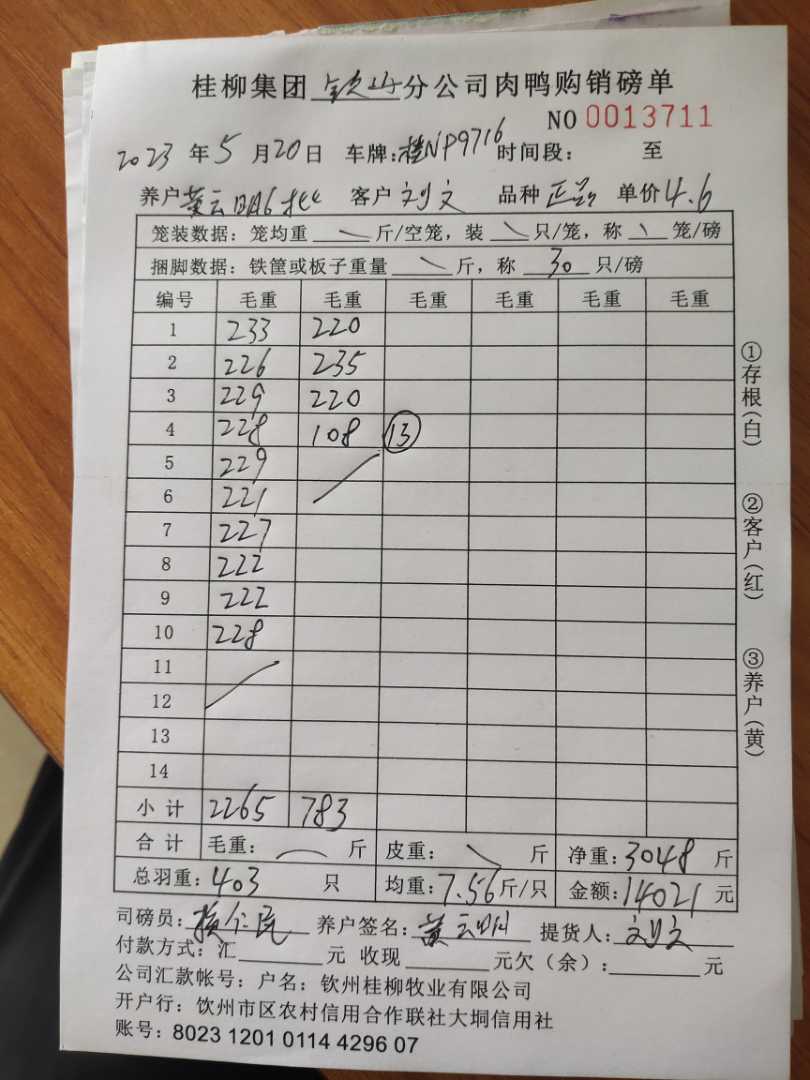 桂柳集团 钦州 分公司肉鸭购销磅单
NO 0013711
2023 年 5 月 20 日 车牌：桂NP9716 时间段： 至
养户 黄云明 客户 刘文 品种 单价 4.6
笼装数据：笼均重 斤/空笼，装 只/笼，称 笼/磅
捆脚数据：铁筐或板子重量 斤，称 30 只/磅
编号 毛重 毛重 毛重 毛重 毛重 毛重
1 233 220
2 226 235
3 229 220
4 228 108 13
5 229
6 221
7 227
8 222
9 222
10 228
11
12
13
14
小 计 2265 783
合 计 毛重： 斤 皮重： 斤 净重：3048 斤
总羽重：403 只 均重：7.56 斤/只 金额：14021 元
司磅员： 养户签名：黄云明 提货人：刘文
付款方式：汇 元 收现 元欠（余）： 元
公司汇款帐号：户名：钦州桂柳牧业有限公司
开户行：钦州市区农村信用合作联社大垌信用社
账号：8023 1201 0114 4296 07
①存根（白）
②客户（红）
③养户（黄）